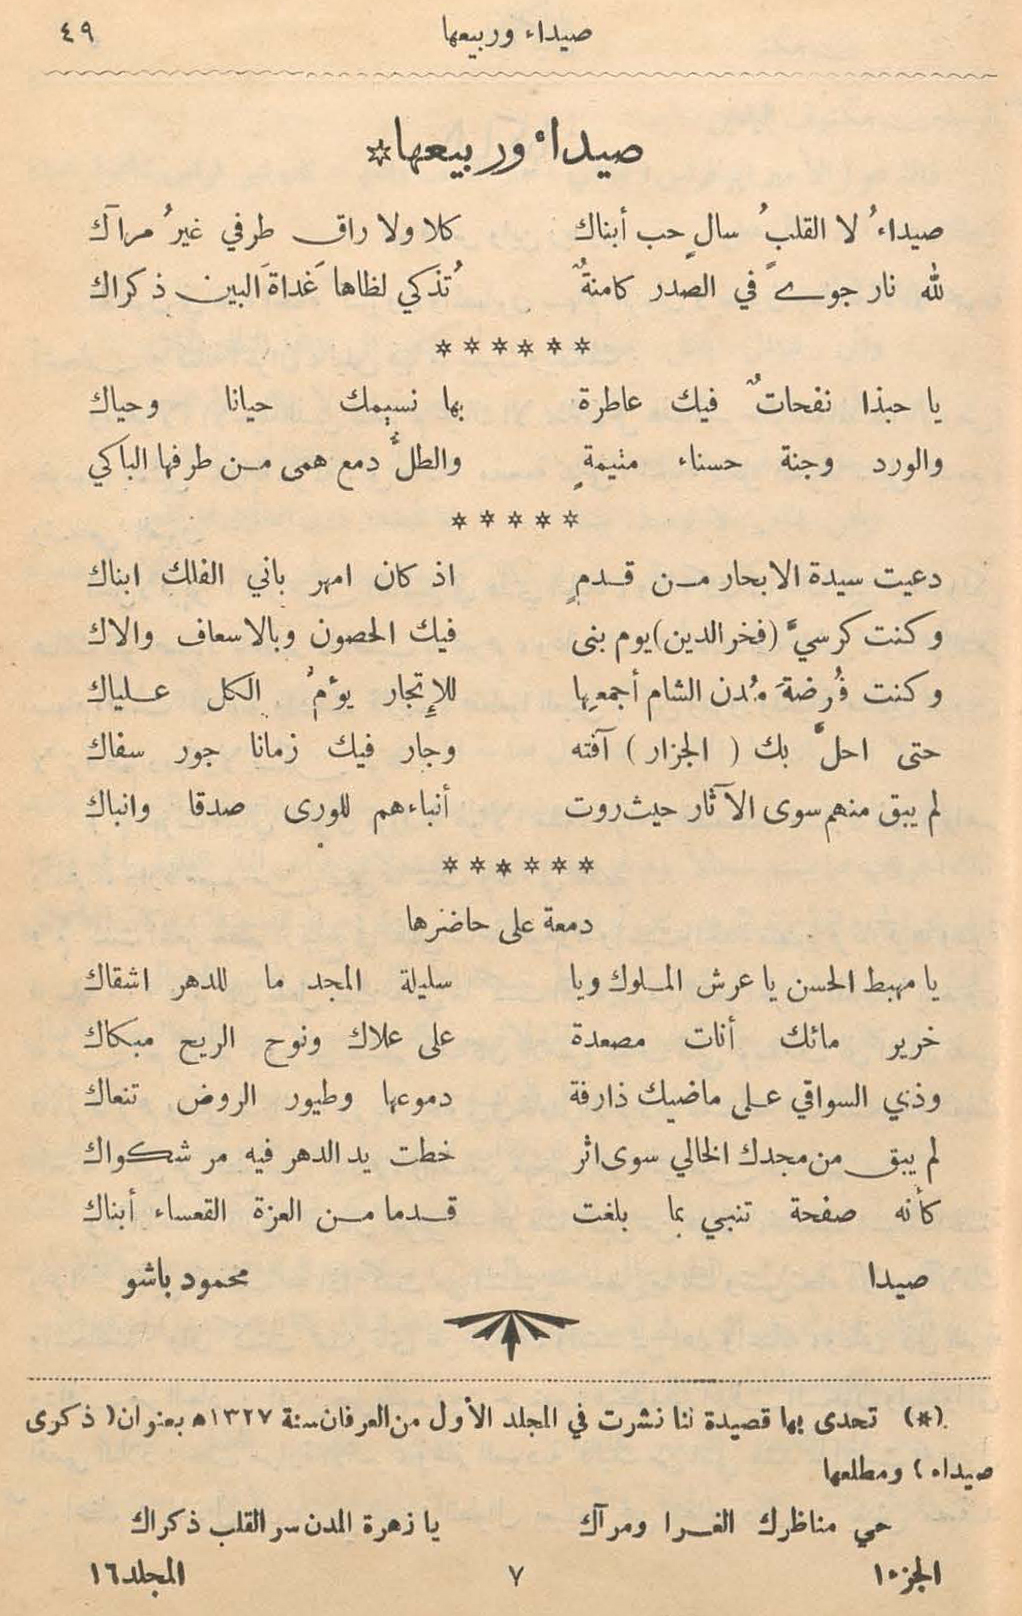 صيداء وربيعها ٤٩
صيداء وربيعها*
صيداءُ لا القلبُ سالٍ حب أبناك كلا ولا راق طرفي غيرُ مرآك
لله نار جوىً في الصدر كامنةٌ تُذكي لظاها غَداةَ البين ذكراك
******
يا حبذا نفحاتٌ فيك عاطرة بها نسيمك حيانا وحياك
والورد وجنة حسناء متيمةٍ والطلُّ دمع همى من طرفها الباكي
*****
دعيت سيدة الابحار من قدمٍ اذ كان امهر باني الفلك ابناك
وكنت كرسيَّ (فخر الدين) يوم بنى فيك الحصون وبالاسعاف والاك
وكنت فُرضةَ مُدن الشام أجمعِها للإِتجار يؤمُ الكل علياك
حتى احلَّ بك (الجزار) آفته وجار فيك زمانا جور سفاك
لم يبق منهم سوى الآثار حيث روت أنباءهم للورى صدقا وانباك
******
دمعة على حاضرها
يا مهبط الحسن يا عرش الملوك ويا سليلة المجد ما للدهر اشقاك
خرير مائك أنات مصعدة على علاك ونوح الريح مبكاك
وذي السواقي على ماضيك ذارفة دموعها وطيور الروض تنعاك
لم يبق من مجدك الخالي سوى اثر خطت يد الدهر فيه مر شكواك
كأنه صفحة تنبي بما بلغت قدما من العزة القعساء أبناك
صيدا محمود باشو
(*) تحدى بها قصيدة لنا نشرت في المجلد الأول من العرفان سنة ١٣٢٧ه بعنوان (ذكرى
صيداء) ومطلعها
حي مناظرك الغرا ومرآك يا زهرة المدن سر القلب ذكراك
الجزء ١ ٧ المجلد ١٦